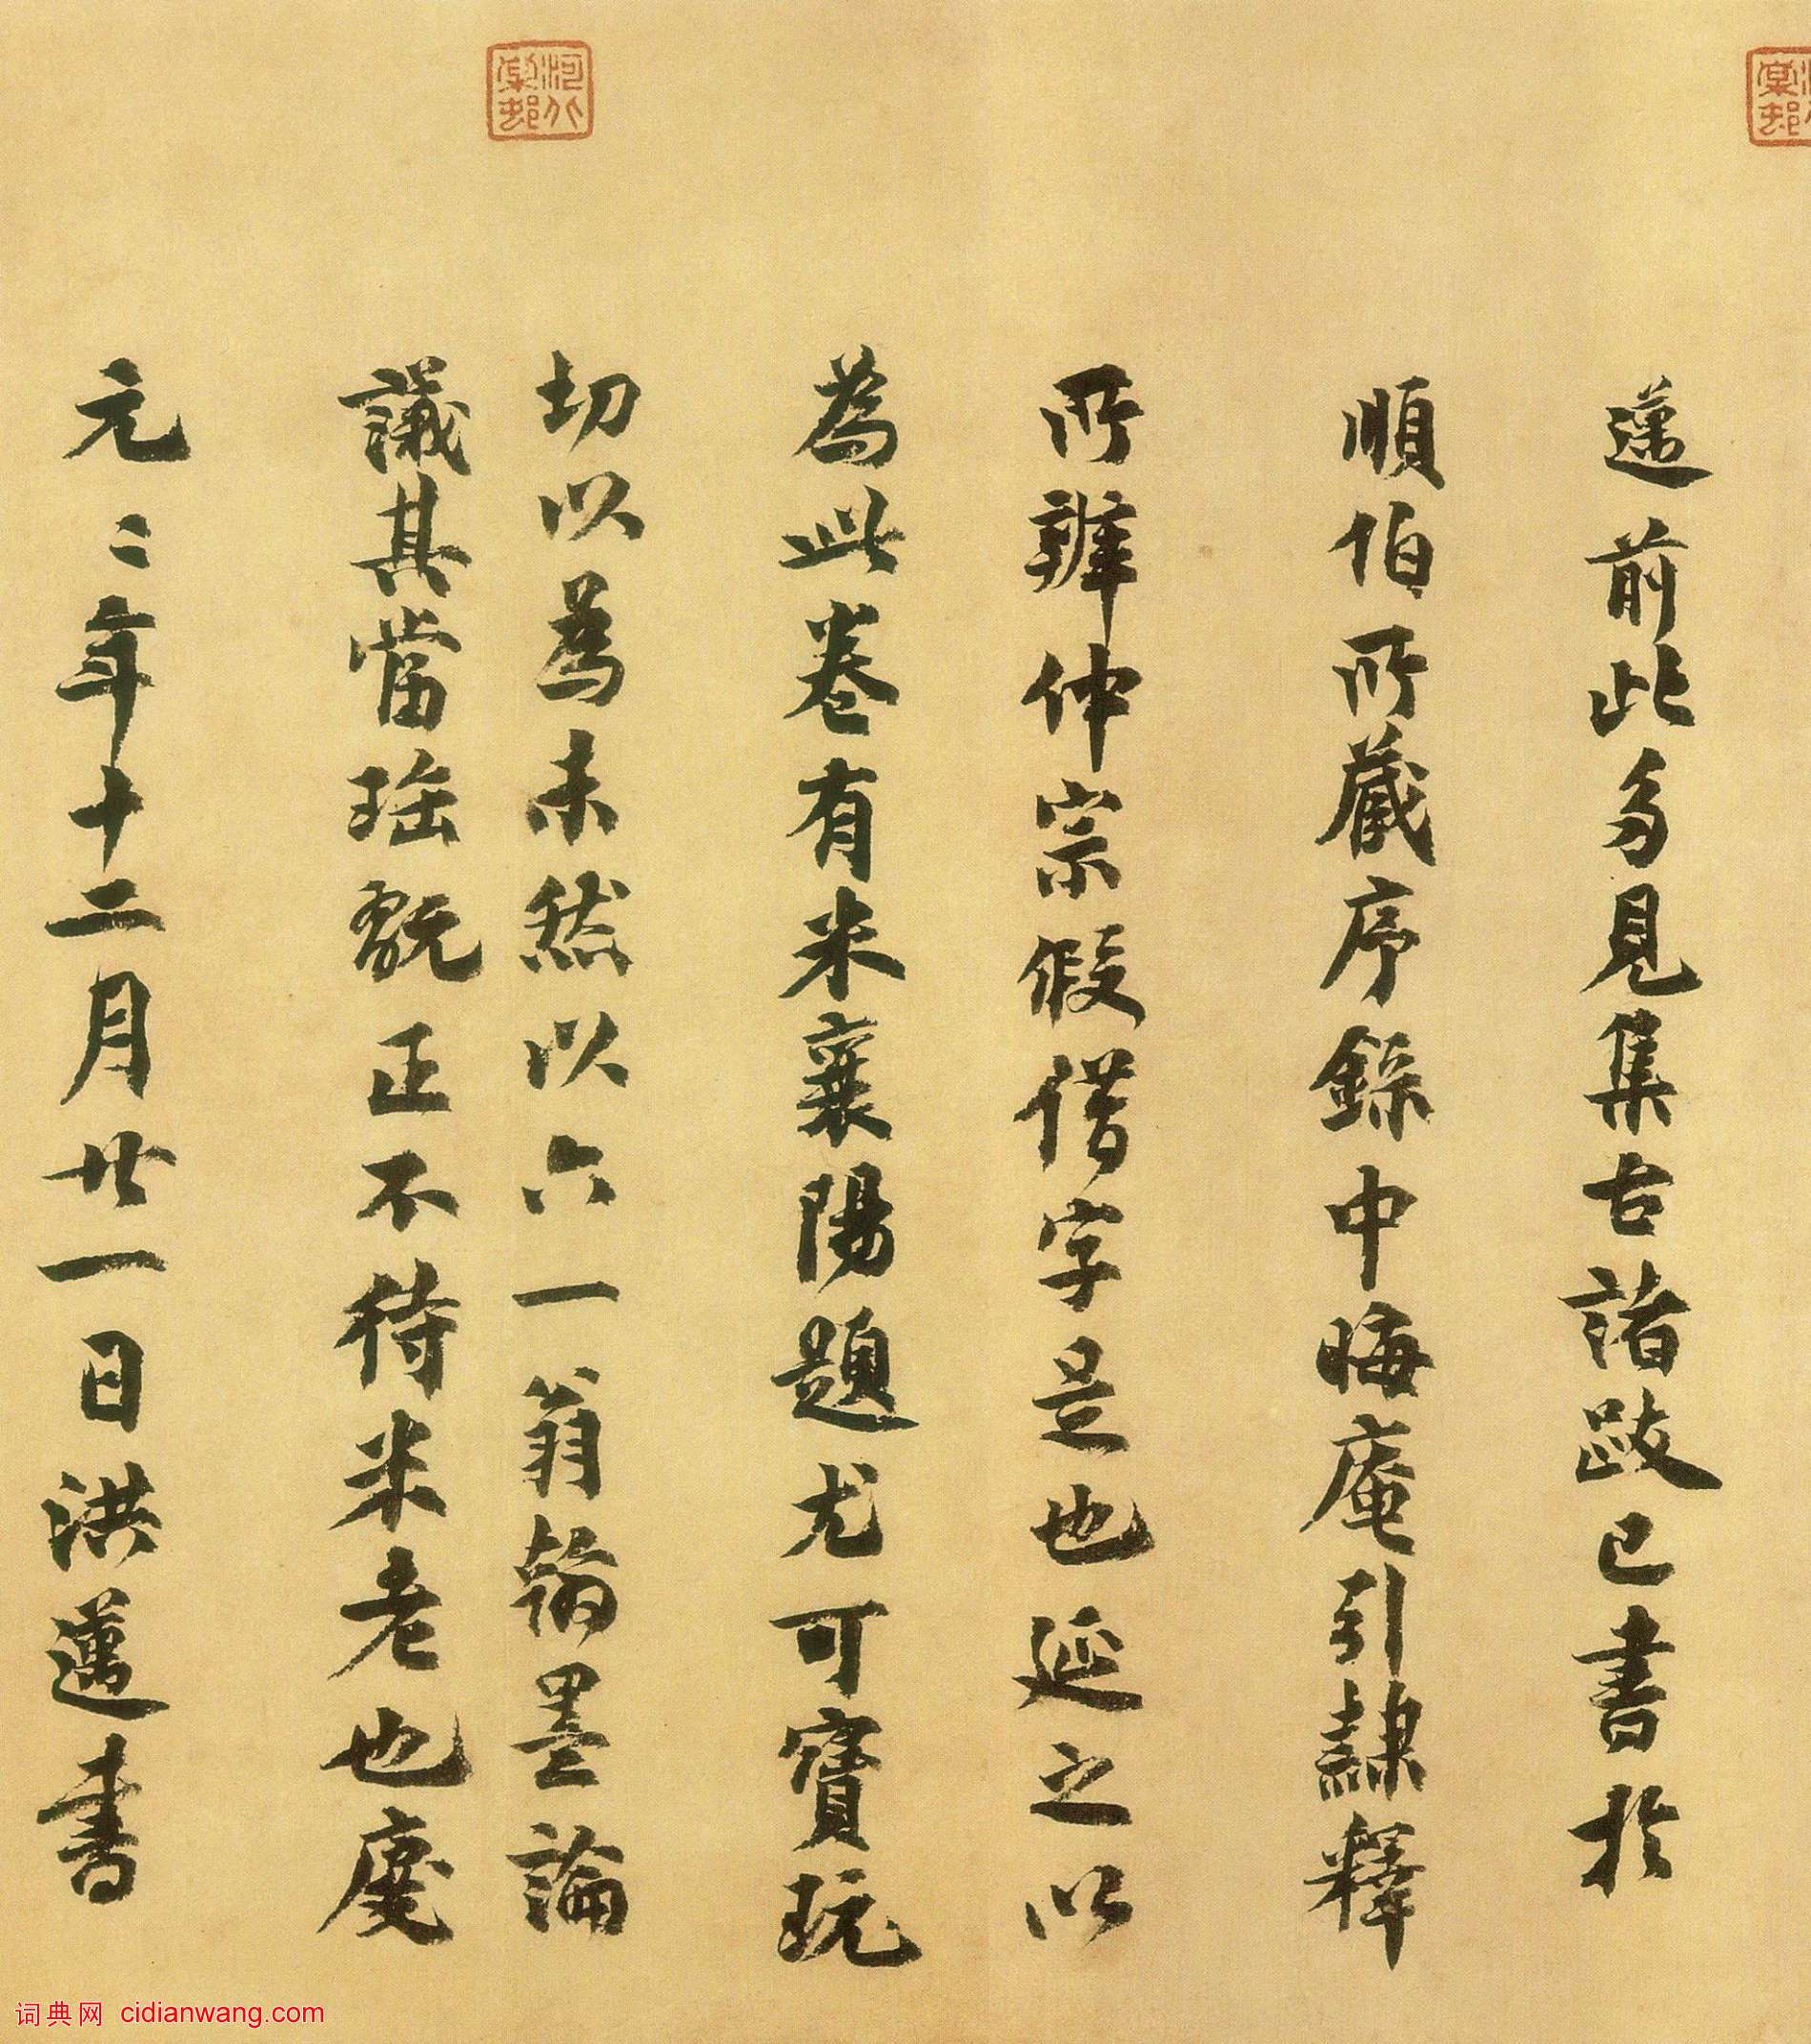 邁前此多見集古諸跋已書於
順伯所藏序錄中晦庵引隸釋
所辨仲宗假借字是也延之以
為此卷有米襄陽題尤可寶玩
切以為未然以六一翁翰墨論
議其當瑤翫正不待米老也慶
元二年十二月廿一日洪邁書
词典网 cidianwang.com